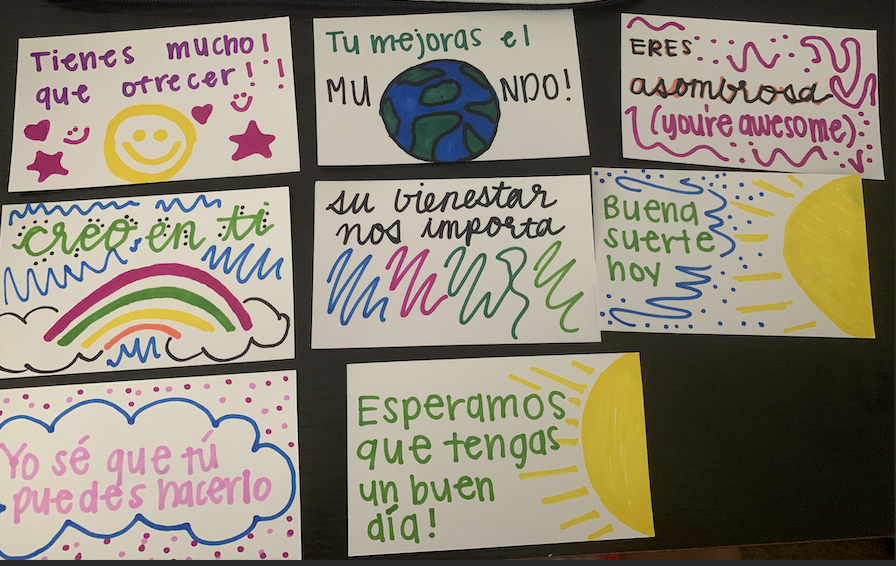 Tienes mucho!
que ofrecer!!
Tu mejoras el
MU NDO!
ERES
asombrosa
(you're awesome)
creo en ti
su bienestar
nos importa
Buena
suerte
hoy
Yo sé que tú
puedes hacerlo
Esperamos
que tengas
un buen
día!